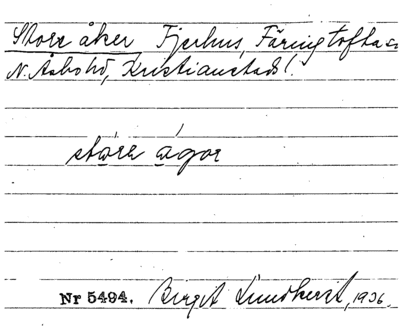 Store åker Fjerhus, Färingtofta sn
N. Åsbohd, Kristianstads l.
större ågor
Nr 5494. Birgit Lundkvist, 1936.